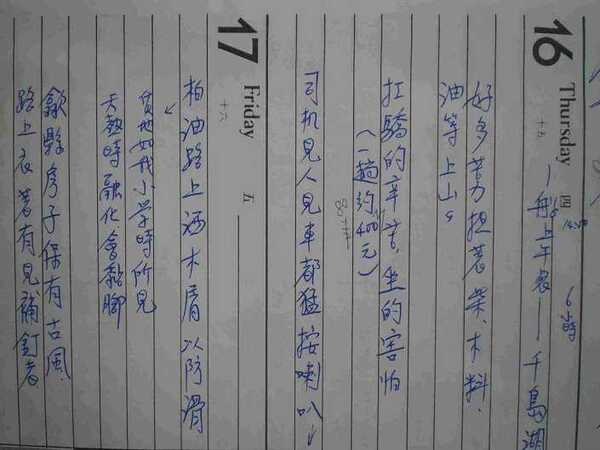 16 Thursday 四
十五
一船上午餐——千島湖
6小時
好多苦力担著柴、木料、
油等上山。
扛轎的辛苦,坐的害怕
(一趟約400元)
司机見人見車都猛按喇叭↓
17 Friday 五
十六
柏油路上洒木屑以防滑
質地如我小学時所見
天熱時融化會黏脚
歙縣房子保有古風
路上衣著有見補釘者